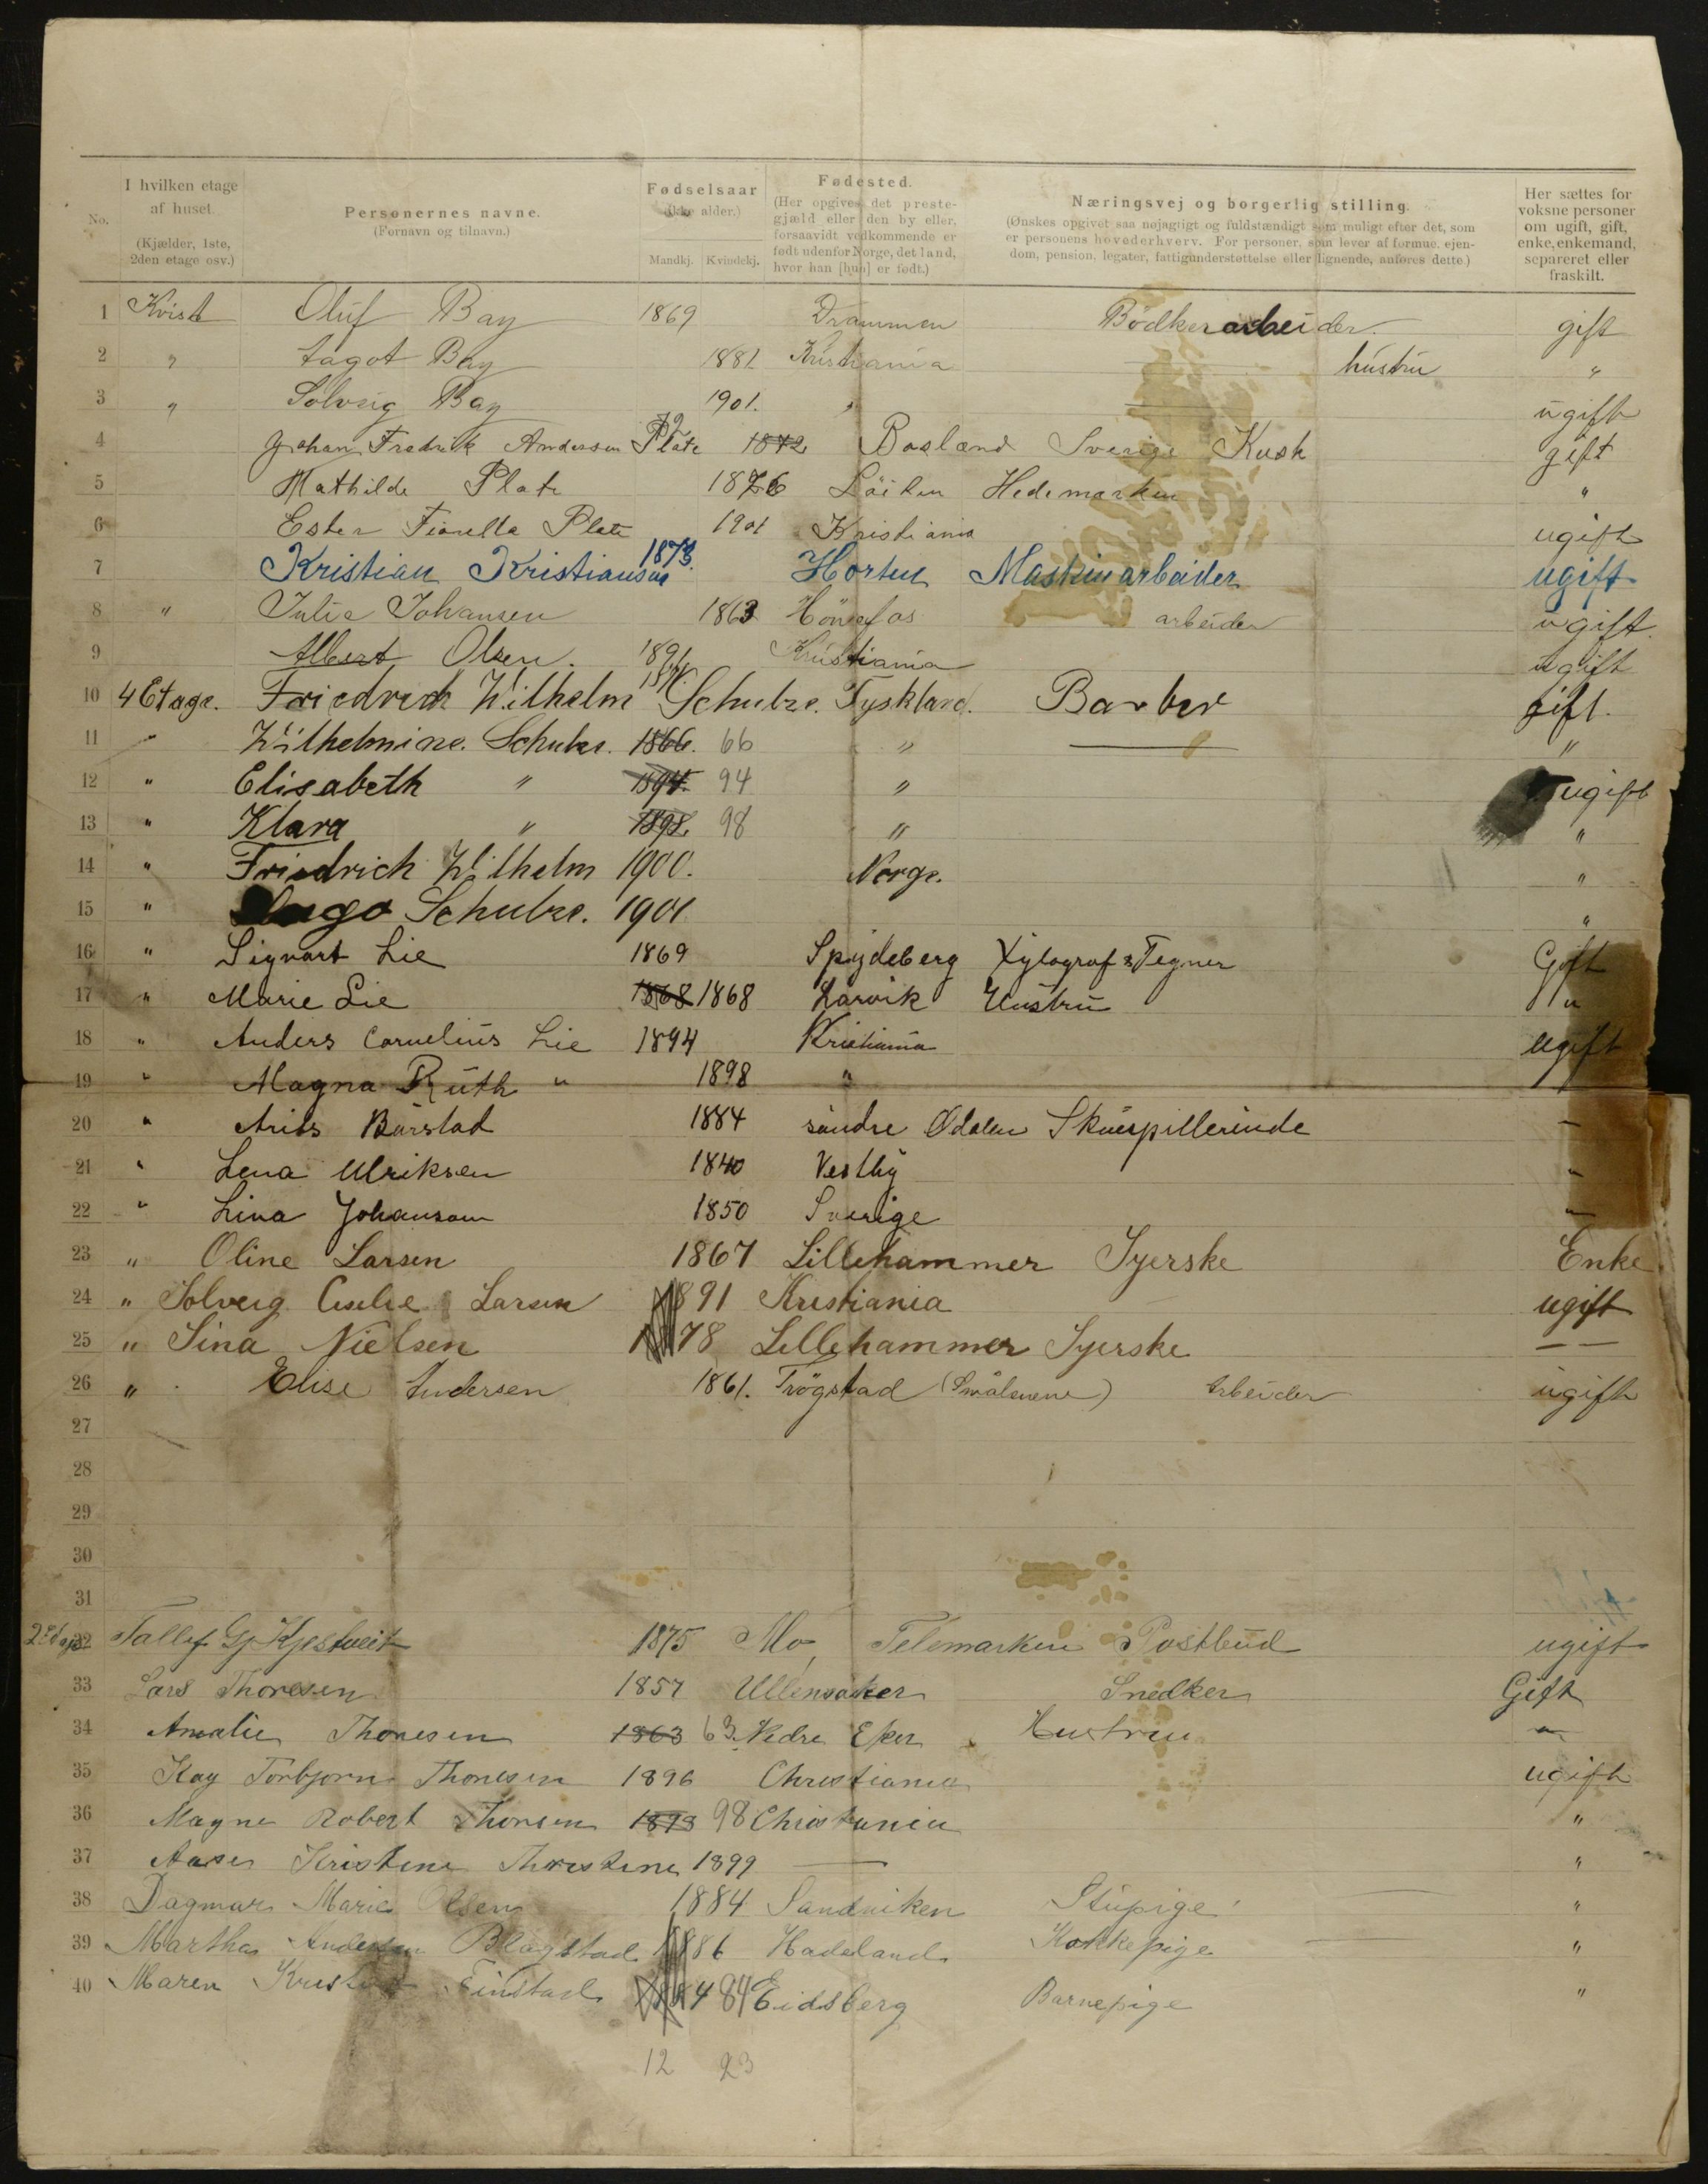 No. I hvilken etage af huset. (Kjælder, 1ste, 2den etage osv.) Personernes navne. (Fornavn og tilnavn.) Fødselsaar (ikke alder.) Mandkj. Kvindekj. Fødested. (Her opgives det prestegjæld eller den by eller, forsaavidt vedkommende er født udenfor Norge, det land, hvor han [hun] er født.) Næringsvej og borgerlig stilling. (Ønskes opgivet saa nøjagtigt og fuldstændigt som muligt efter det, som er personens hovederhverv. For personer, som lever af formue, ejendom, pension, legater, fattigunderstøttelse eller lignende, anføres dette.) Her sættes for voksne personer om ugift, gift, enke, enkemand, separeret eller fraskilt.
1 Kvist Oluf Bay 1869 Drammen Bødkerarbeider gift
2 " Aagot Bay 1881 Kristiania hustru "
3 " Solveig Bay 1901. " ugift
4 Johan Fredrik Andersson Plate 72 1872 Sverige Kusk gift
5 Mathilde Plate 1876 Löiten Hedemarken "
6 Ester Fiorella Plate 1901 Kristiania ugift
7 Kristian Kristiansen 1873. Horten Maskinarbeider ugift
8 " Julie Johansen 1863 Hönefos arbeider ugift
9 Albert Olsen. 1891 Kristiania ugift
10 4 Etage. Friedrich Wilhelm Schulze. Tyskland. Barber gift.
11 " Wilhelmine Schulze. 1866. 66 " "
12 " Elisabeth " 1894. 94 " ugift
13 " Klara " 1898. 98 " "
14 " Friedrich Wilhelm 1900. Norge. "
15 " Hugo Schulze. 1901 "
16 " Sigvart Lie 1869 Spydeberg Xylograf & Tegner Gift
17 " Marie Lie 1868 1868 Larvik Hustru "
18 " Anders Cornelius Lie 1894 Kristiania Ugift
19 " Magna Ruth " 1898 "
20 " Barstad 1884 söndre Odalen Skuespillerinde "
21 " Lena Ulriksen 1840 Vestby "
22 " Lina Johanson 1850 Sverige "
23 " Oline Larsen 1867 Lillehammer Syerske Enke
24 " Solveig Larsen 1891 Kristiania ugift
25 " Sina Nielsen 1878 Lillehammer Syerske — —
26 " Elise Andersen 1861. Trögstad (Smålenene) Arbeider ugift
27
28
29
30
31
32 2 Etage Tallef Gj. Kjestveit 1875 Mo, Telemarken Postbud ugift
33 Lars Thoresen 1857 Ullensaker Snedker Gift
34 Amalie Thoresen 1863 63 Nedre Eker Hustru "
35 Kay Torbjorn Thoresen 1896 Christiania ugift
36 Magne Robert Thoresen 1898 98 Christiania "
37 Aase Kristine 1899 — "
38 Dagmar Marie Olsen 1884 Sandviken Stuepige "
39 Martha Andersen Blagstad 1886 Hadeland Kokkepige "
40 Maren Finstad 84 Eidsberg Barnepige "
12 23